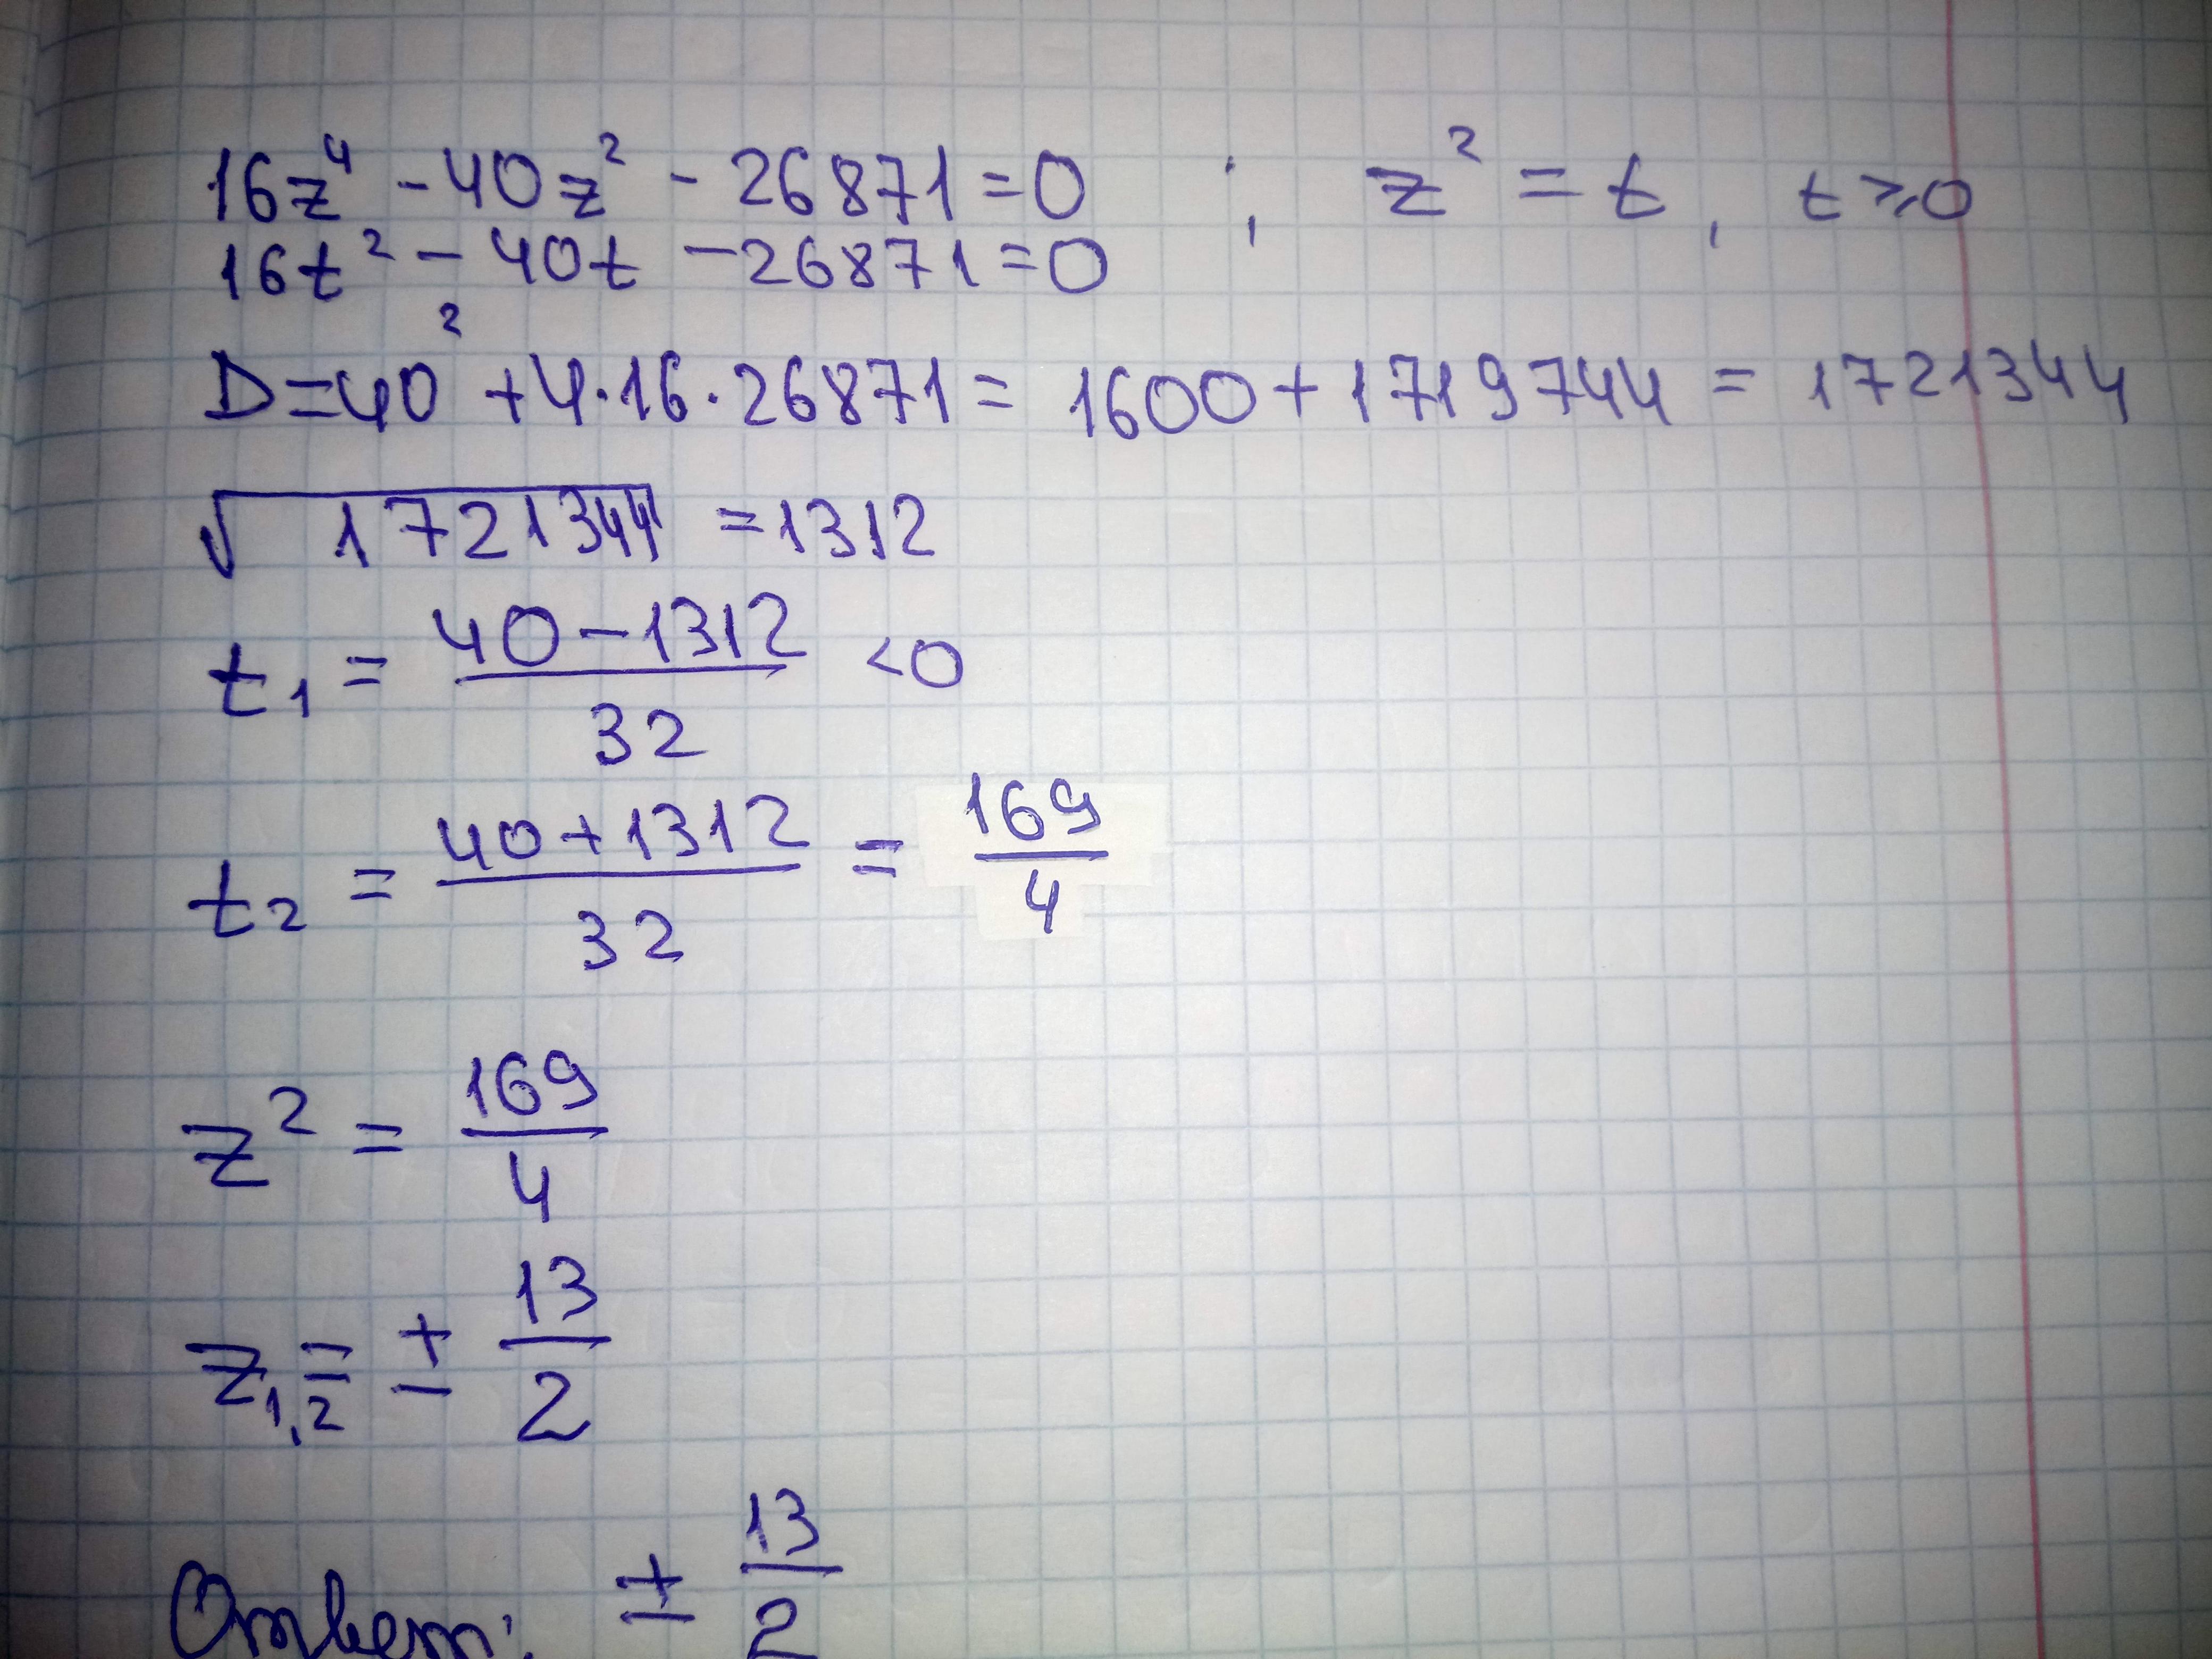 16z⁴ - 40z² - 26871 = 0 ; z² = t, t ≥ 0
16t² - 40t - 26871 = 0
D = 40² + 4·16·26871 = 1600 + 1719744 = 1721344
√1721344 = 1312
t₁ = (40 - 1312)/32 < 0
t₂ = (40 + 1312)/32 = 169/4
z² = 169/4
z₁,₂ = ± 13/2
Ответ: ± 13/2